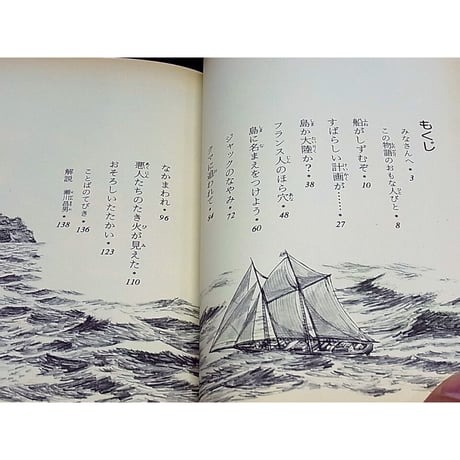 もくじ
みなさんへ・3
この物語のおもな人びと・8
船がしずむぞ・10
すばらしい計画が……・27
島か大陸か?・38
フランス人のほら穴・48
島に名まえをつけよう・60
ジャックのなやみ・72
クマに追われて・84
なかまわれ・96
悪人たちのたき火が見えた・110
おそろしいたたかい・123
ことばのてびき・136
解説 瀬川昌男・138